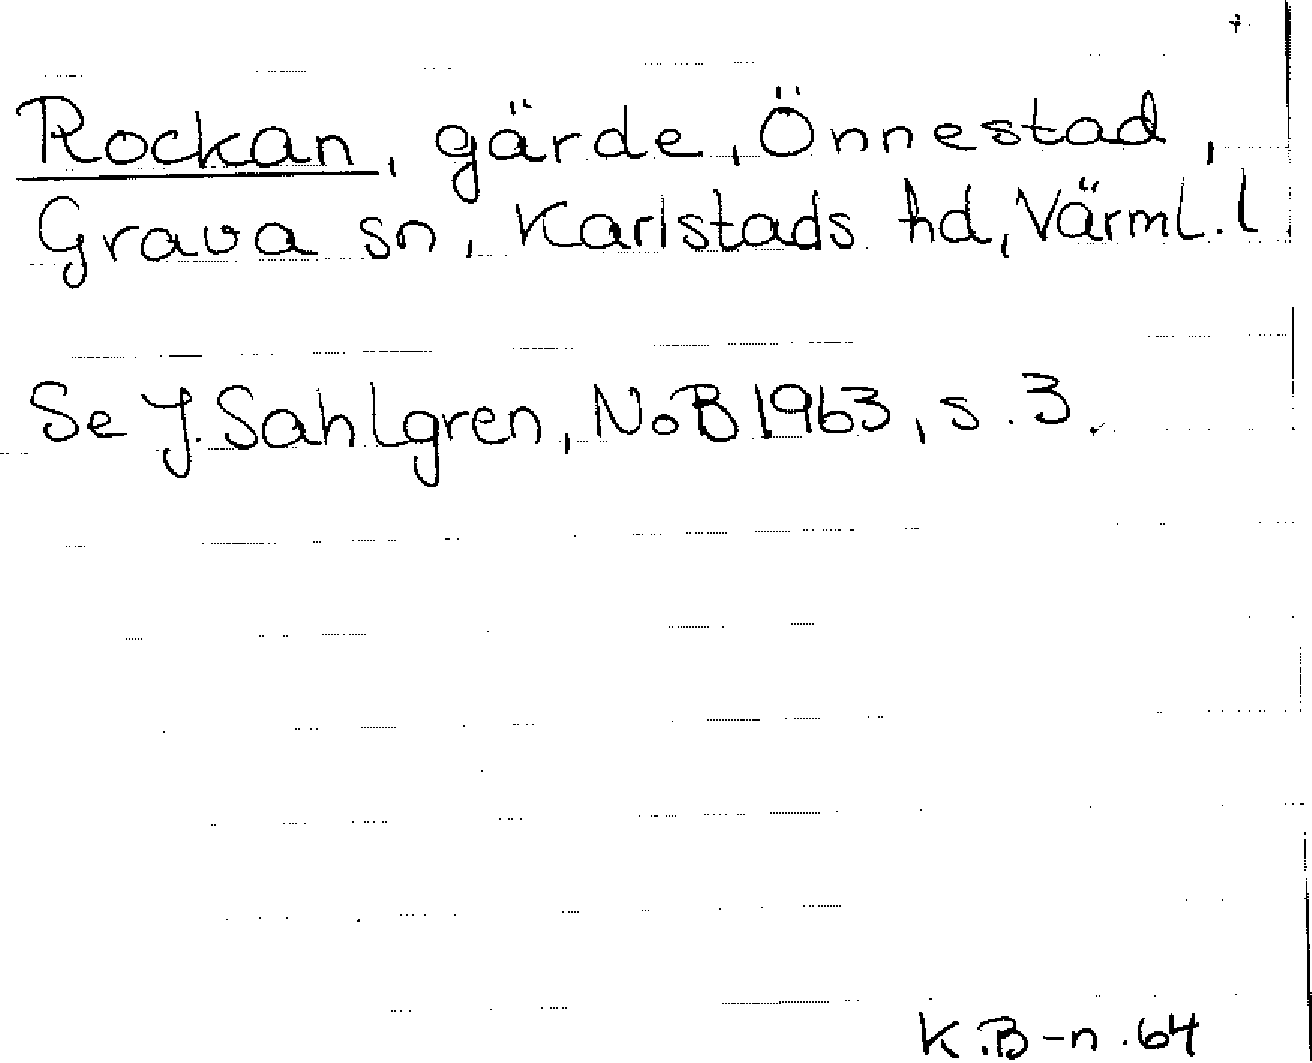 Rockan, gärde, Önnestad,
Grava sn, Karlstads hd, Värml. l
Se J. Sahlgren, NoB 1963, s. 3.
K.B-n. 64